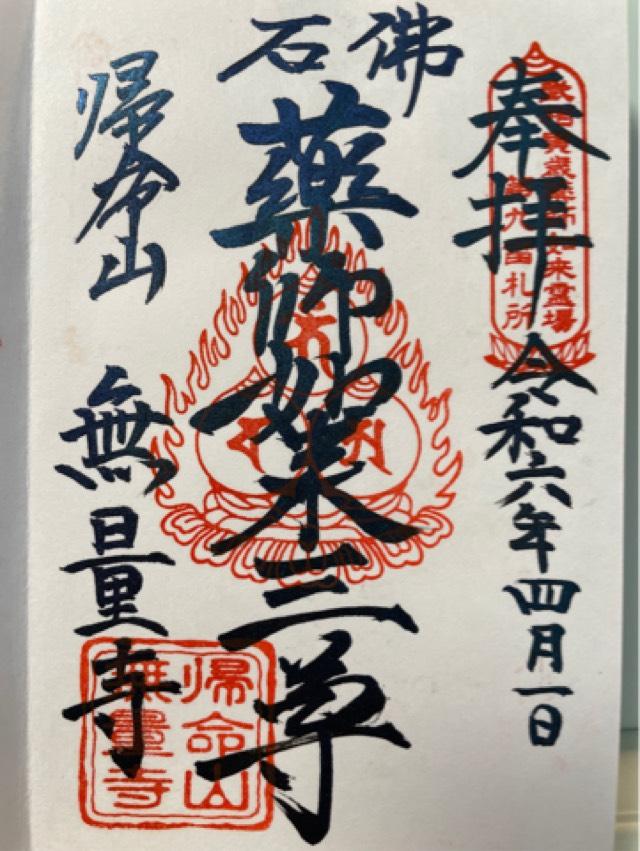 奉拝 令和六年四月一日
寅歳薬師如来霊場
第九番札所
石佛
薬師如来三尊
帰命山 無量寺
帰命山
無量寺